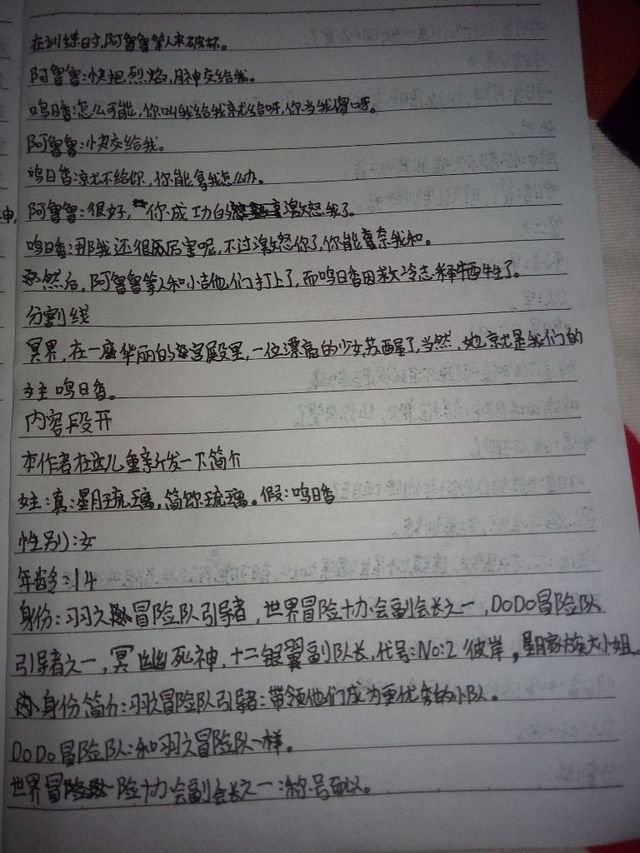 在训练时,阿鲁鲁等人来破坏。
阿鲁鲁:快把烈焰,月神交给我。
鸣日香:怎么可能,你叫我给我就给呀,你当我傻呀。
阿鲁鲁:快交给我。
鸣日香:就不给你,你能拿我怎么办。
阿鲁鲁:很好,你成功的激怒我了。
鸣日香:那我还很厉害呢,不过激怒你了,你能奈我和。
然后,阿鲁鲁等人和小吉他们打上了,而鸣日香因救冷志释牺牲了。
分割线
冥界,在一座华丽的宫殿里,一位漂亮的少女苏醒了,当然,她就是我们的
女主鸣日香。
内容段开
本作者在这儿重新发一下简介
女主:真:星月琉璃,简称琉璃。假:鸣日香
性别:女
年龄:14
身份:羽之冒险队引导者,世界冒险协会副会长之一,DODO冒险队
引导者之一,冥幽死神,十二银翼副队长,代号:No:2 彼岸,星月家族大小姐
身份简介:羽之冒险队引导者:带领他们成为更优秀的小队。
DODO冒险队:和羽之冒险队一样。
世界冒险协会副会长之一:称号而以。